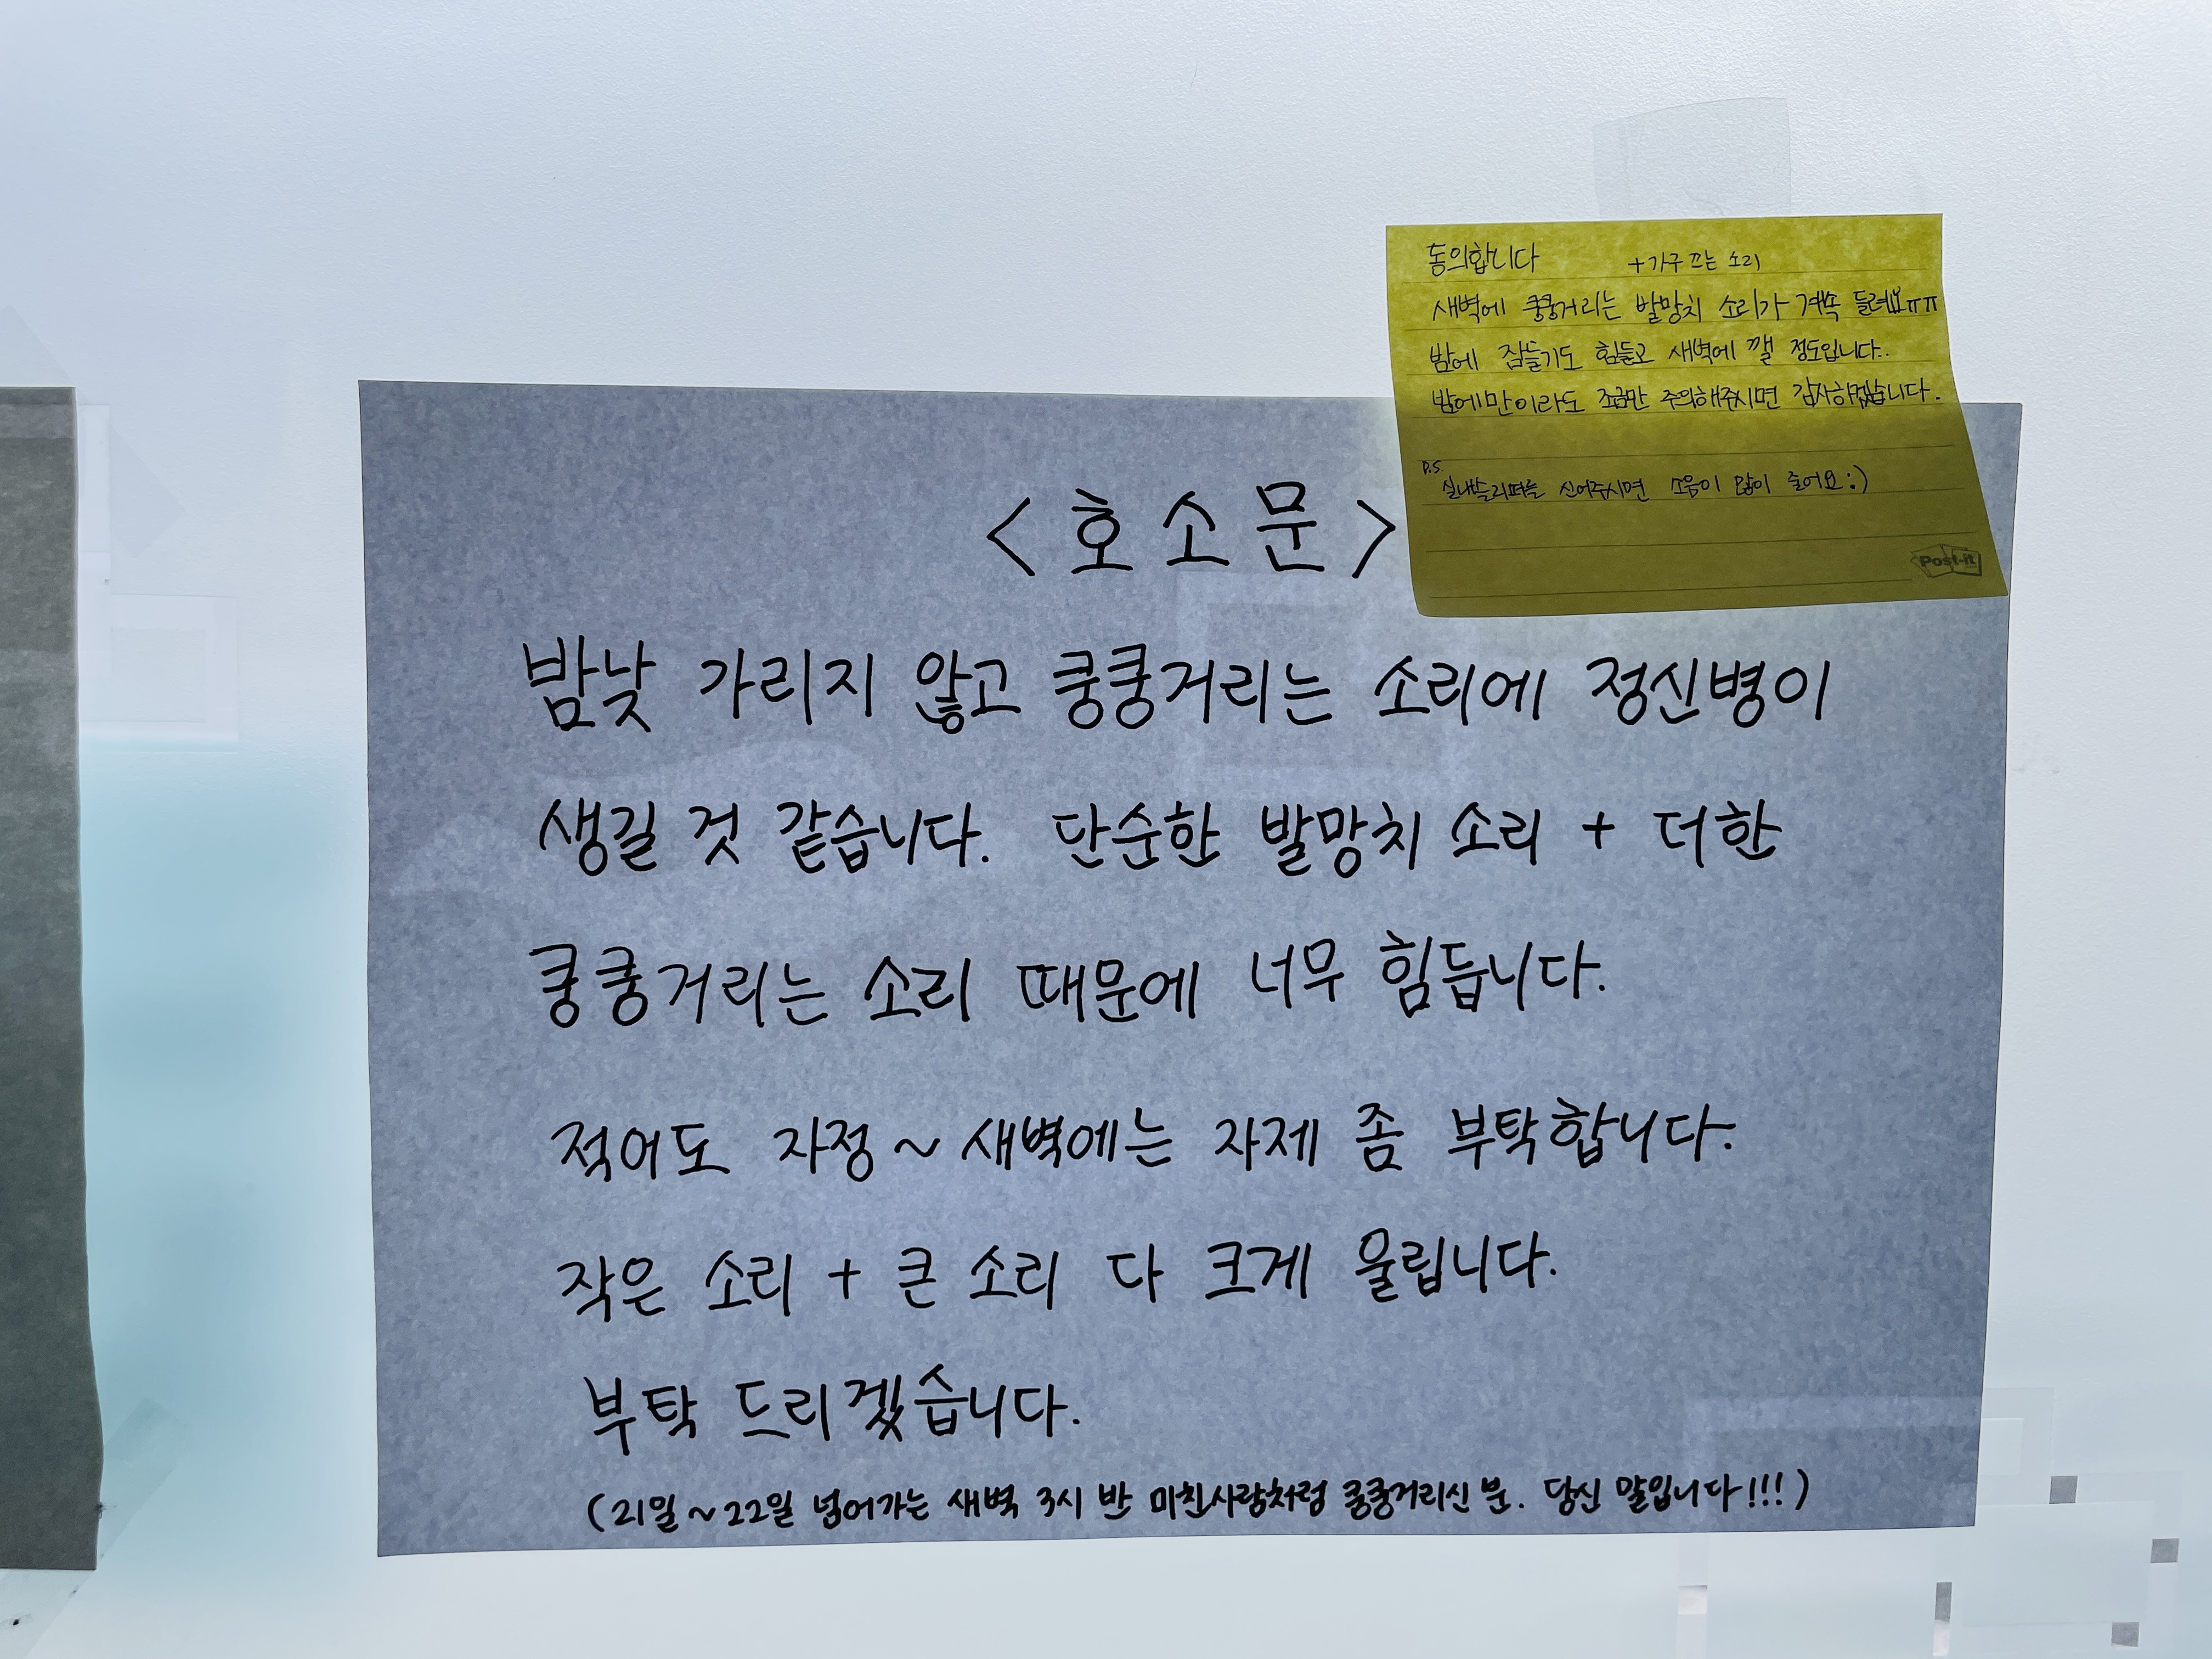 동의합니다 +가구 끄는 소리
새벽에 쿵쿵거리는 발망치 소리가 계속 들려요ㅠㅠ
밤에 잠들기도 힘들고 새벽에 깰 정도입니다..
밤에만이라도 조금만 주의해주시면 감사하겠습니다.
P.S.
실내슬리퍼를 신어주시면 소음이 많이 줄어요:)
Post-it
<호소문>
밤낮 가리지 않고 쿵쿵거리는 소리에 정신병이
생길 것 같습니다. 단순한 발망치 소리 + 더한
쿵쿵거리는 소리 때문에 너무 힘듭니다.
적어도 자정~새벽에는 자제 좀 부탁합니다.
작은 소리 + 큰 소리 다 크게 울립니다.
부탁 드리겠습니다.
(21일~22일 넘어가는 새벽 3시 반 미친사람처럼 쿵쿵거리신 분. 당신 말입니다!!!)